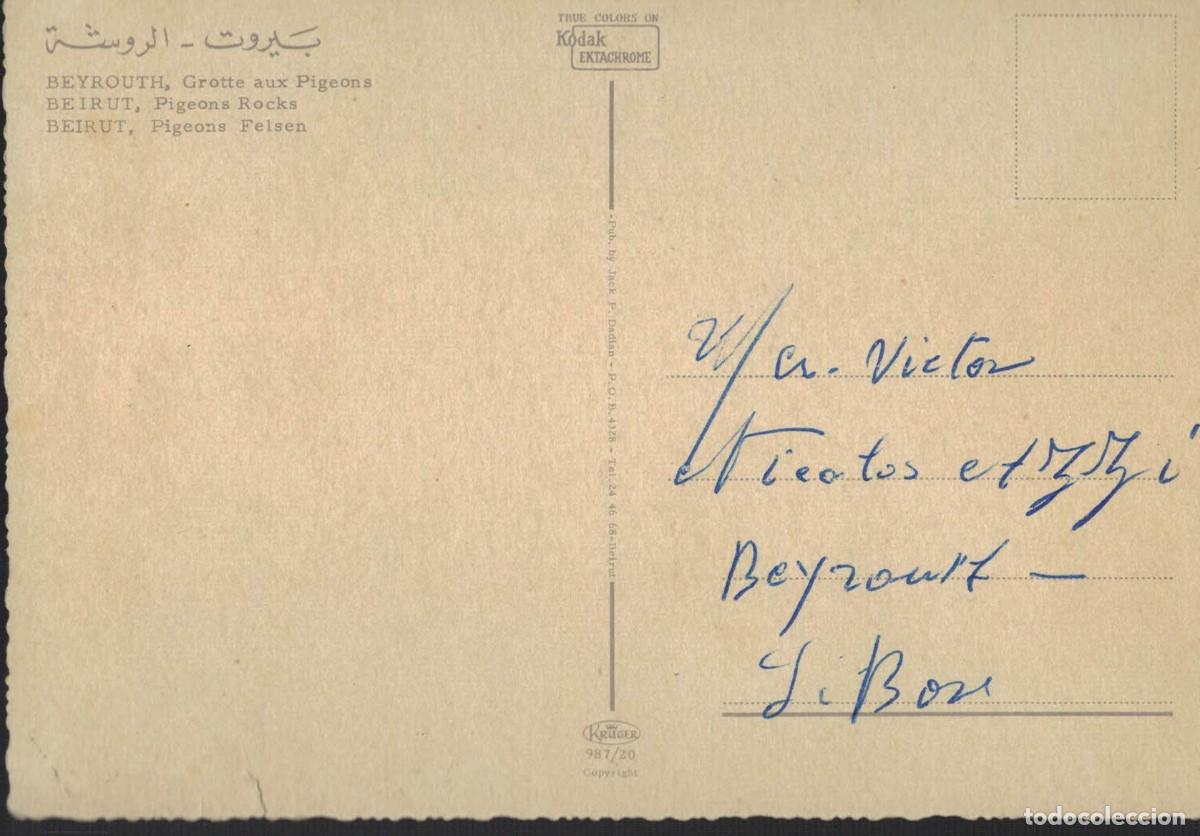 بيروت - الروشة
BEYROUTH, Grotte aux Pigeons
BEIRUT, Pigeons Rocks
BEIRUT, Pigeons Felsen
TRUE COLORS ON
Kodak
EKTACHROME
-Pub. by Jack P. Dadian - P.O.B. 4328 - Tel. 24 46 68-Beirut
Victor
Beyrouth -
LiBan
KRÜGER
987/20
Copyright
todocoleccion